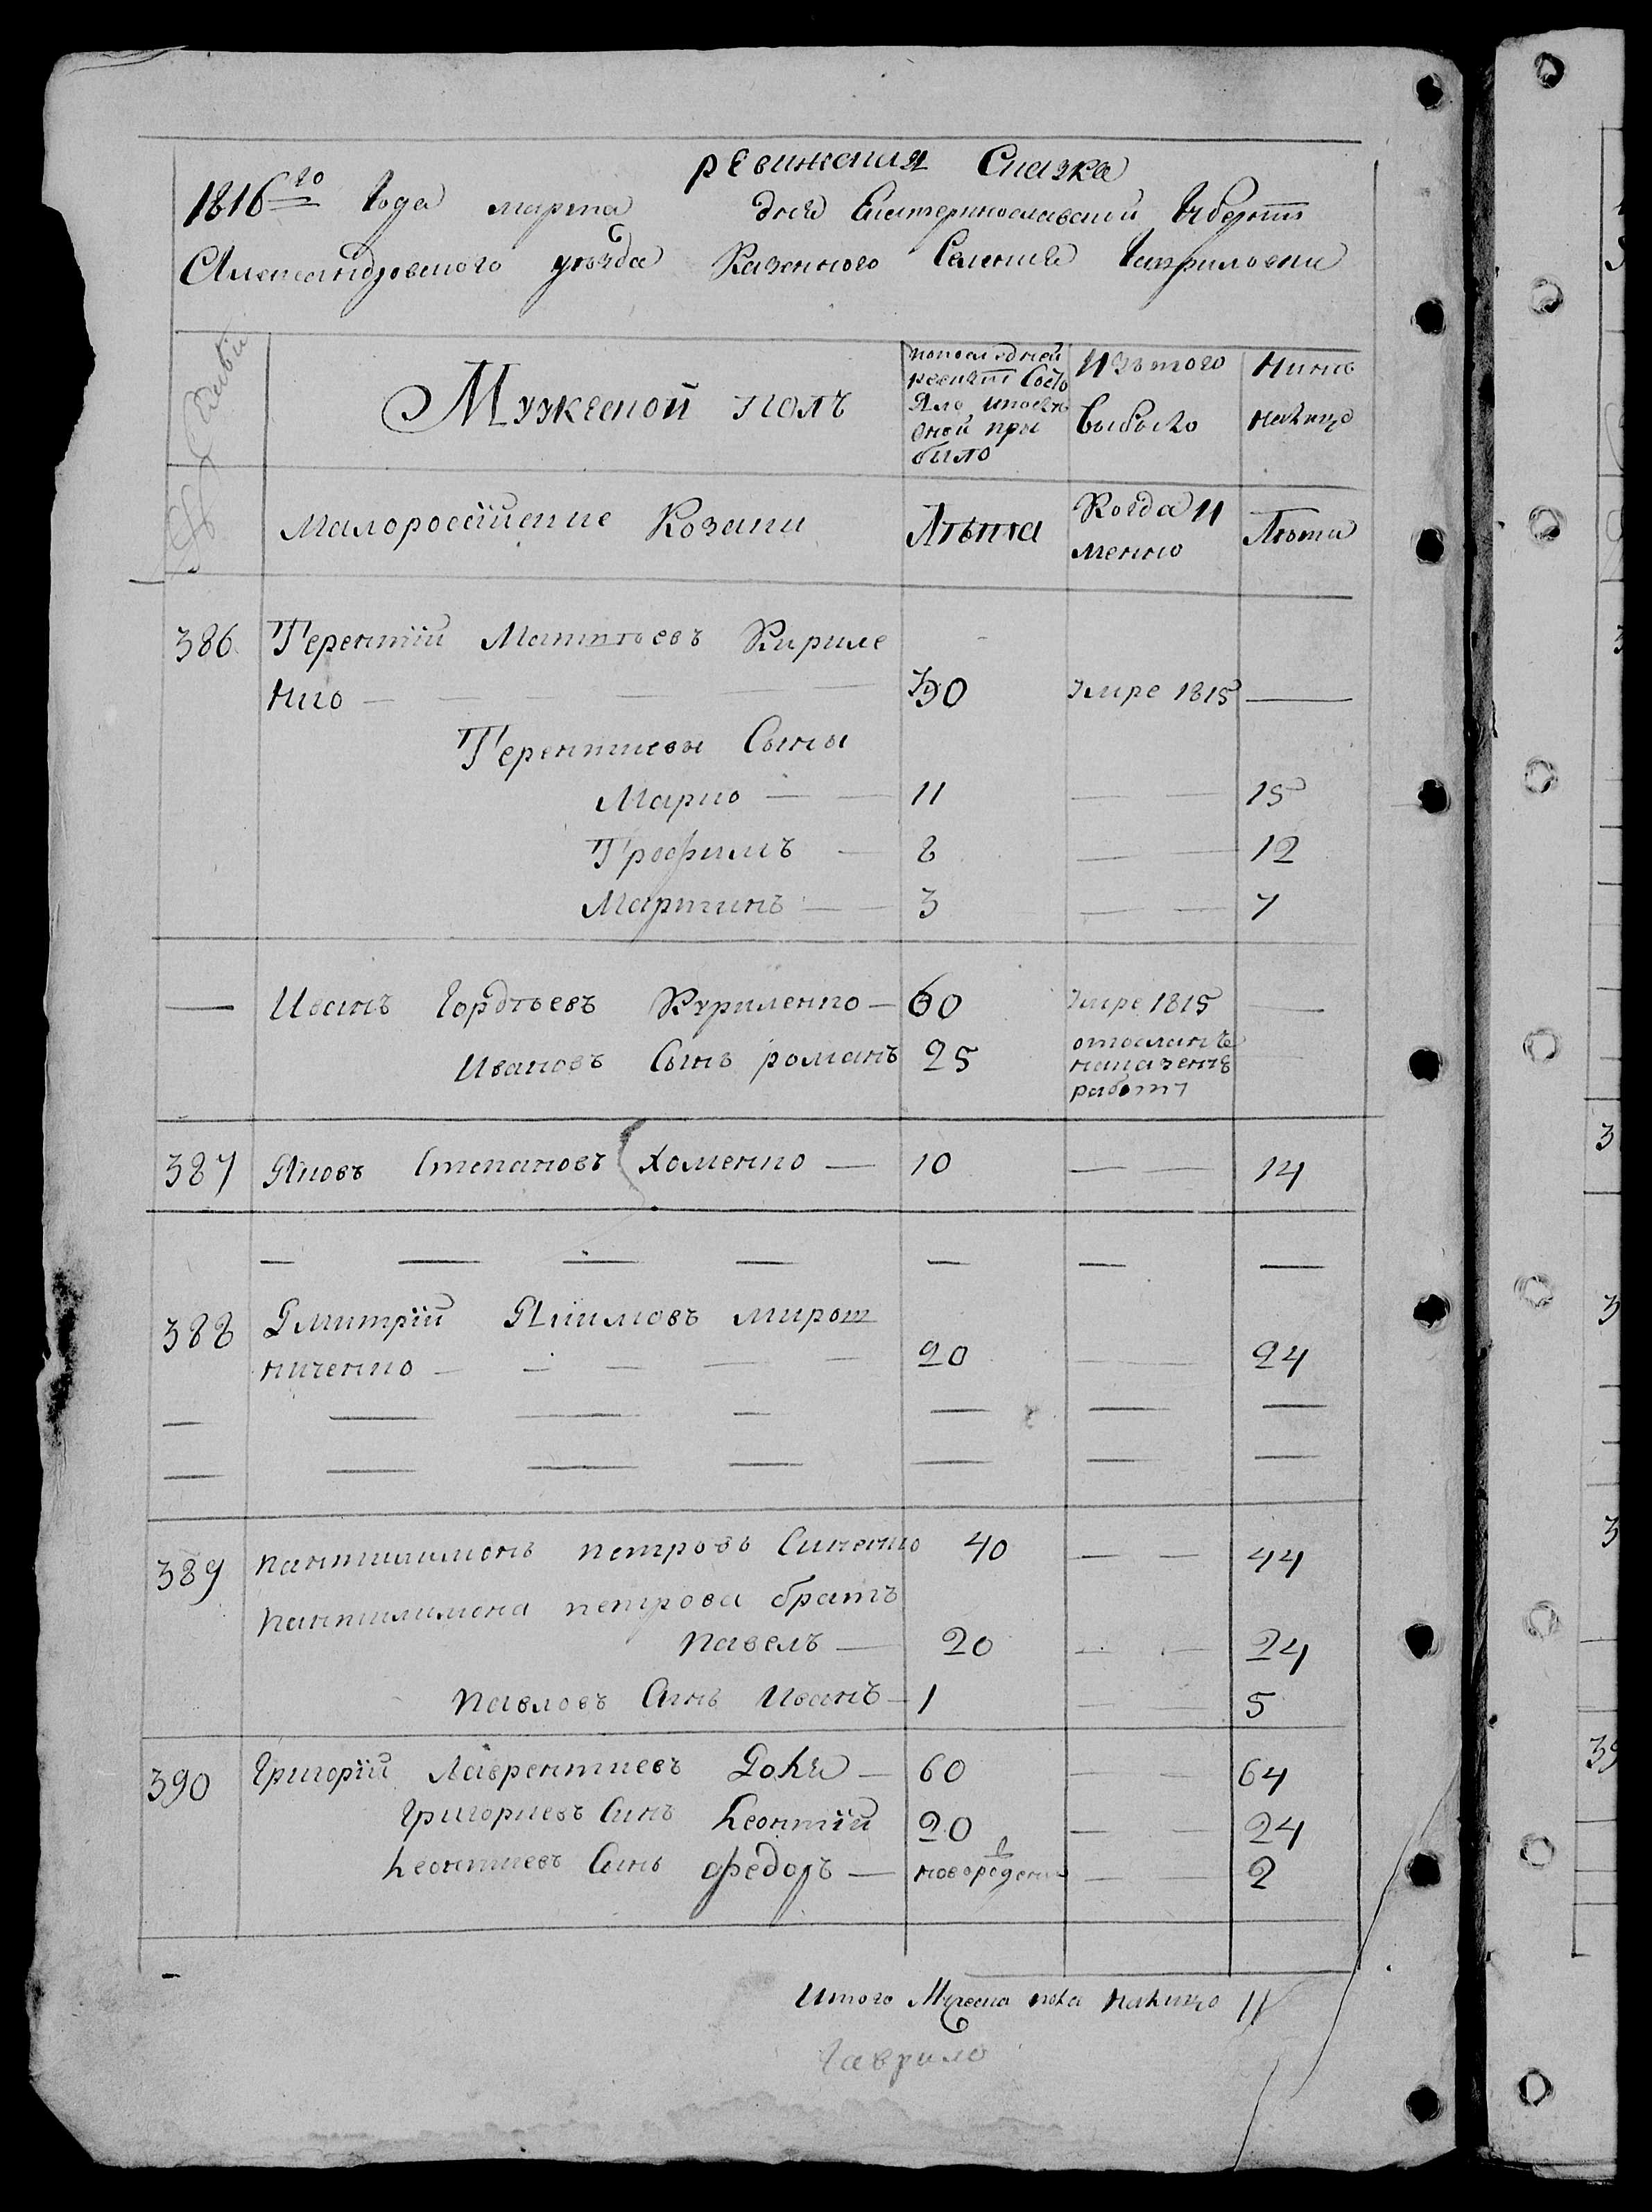 ревижская Сказка
1816го Года марта дня Екатеринославской Губернiи
Александровского уезда Казенного Селения Гавриловки
№ Семьи
Мужеской полъ
попоследней
ревизiи Состо
яло ипослѣ
оной при
было
Изътого
выбыло
Нынѣ
налицо
Малоросciйские Козаки
Лѣта
Когда И
менно
Лѣта
386 Терентiй Матвѣевъ Кириле
нко — — — — 30 умре 1815 —
Терентиевы Сыны
Марко — — 11 — — 15
Трофимъ — 8 — — 12
Мартинъ — — 3 — — 7
— Иванъ Гордѣевъ Куриленко — 60 умре 1815 —
Ивановъ Сынъ романъ 25
отосланъ
наказенъ
работу
387 Яковъ Степановъ Хоменко — 10 — — 14
— — — — — — —
388 Дмитрiй Якимовъ мирош
ниченко — — — — — 20 — — 24
— — — — — — —
— — — — — — —
389 пантилимонъ петровъ Синенко 40 — — 44
пантилимона петрова братъ
павелъ — 20 — — 24
павловъ Синъ Иванъ — 1 — — 5
390 Григорiй Лаврентиевъ Доля — 60 — — 64
Григориевъ Синъ Леонтiй 20 — — 24
Леонтиевъ Синъ федоръ — новорожденъ — — 2
Итого Мужеска пола налицо 11
Гаврило